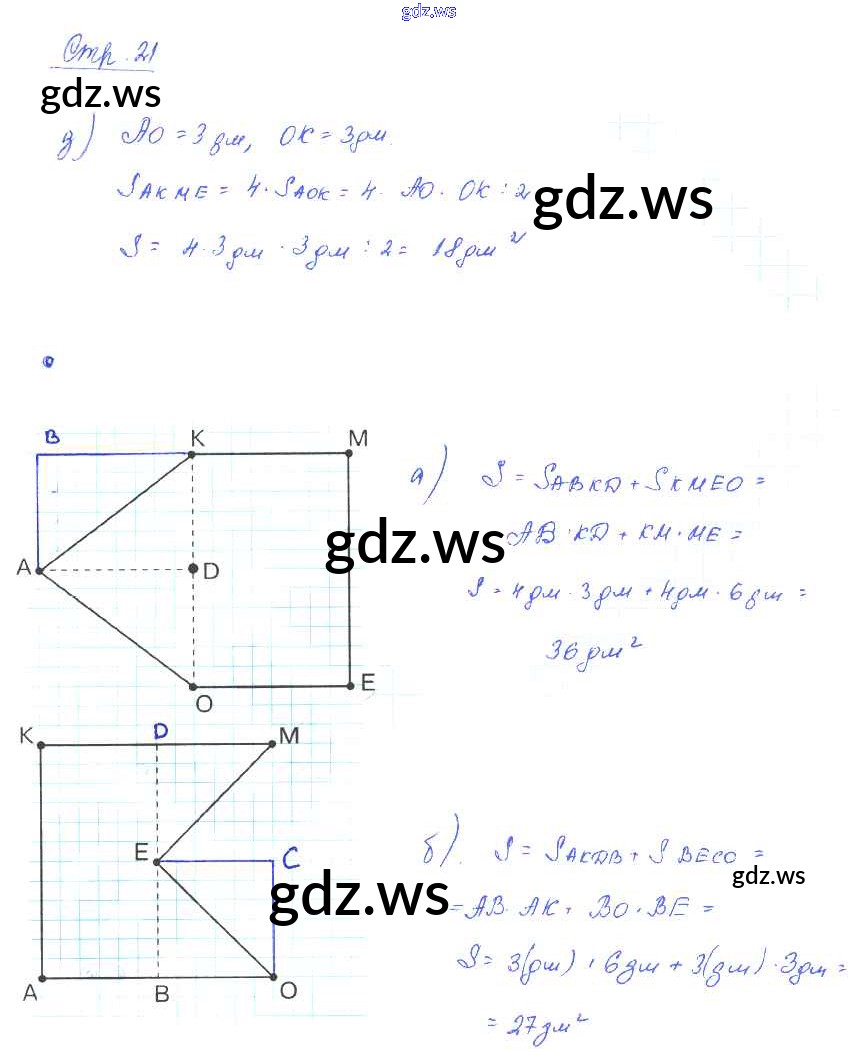 gdz.ws
Стр. 21
gdz.ws
д) AO = 3 дм, OK = 3 дм.
SAKME = 4 · SAOK = 4 · AO · OK : 2
gdz.ws
S = 4 · 3 дм · 3 дм : 2 = 18 дм²
B K M
A D
O E
gdz.ws
а) S = SABKD + SKMEO =
AB · KD + KM · ME =
S = 4 дм · 3 дм + 4 дм · 6 дм =
36 дм²
K D M
E C
A B O
gdz.ws
б). S = SAKDB + SBECO =
gdz.ws
= AB · AK + BO · BE =
S = 3(дм) · 6 дм + 3(дм) · 3 дм =
= 27 дм²